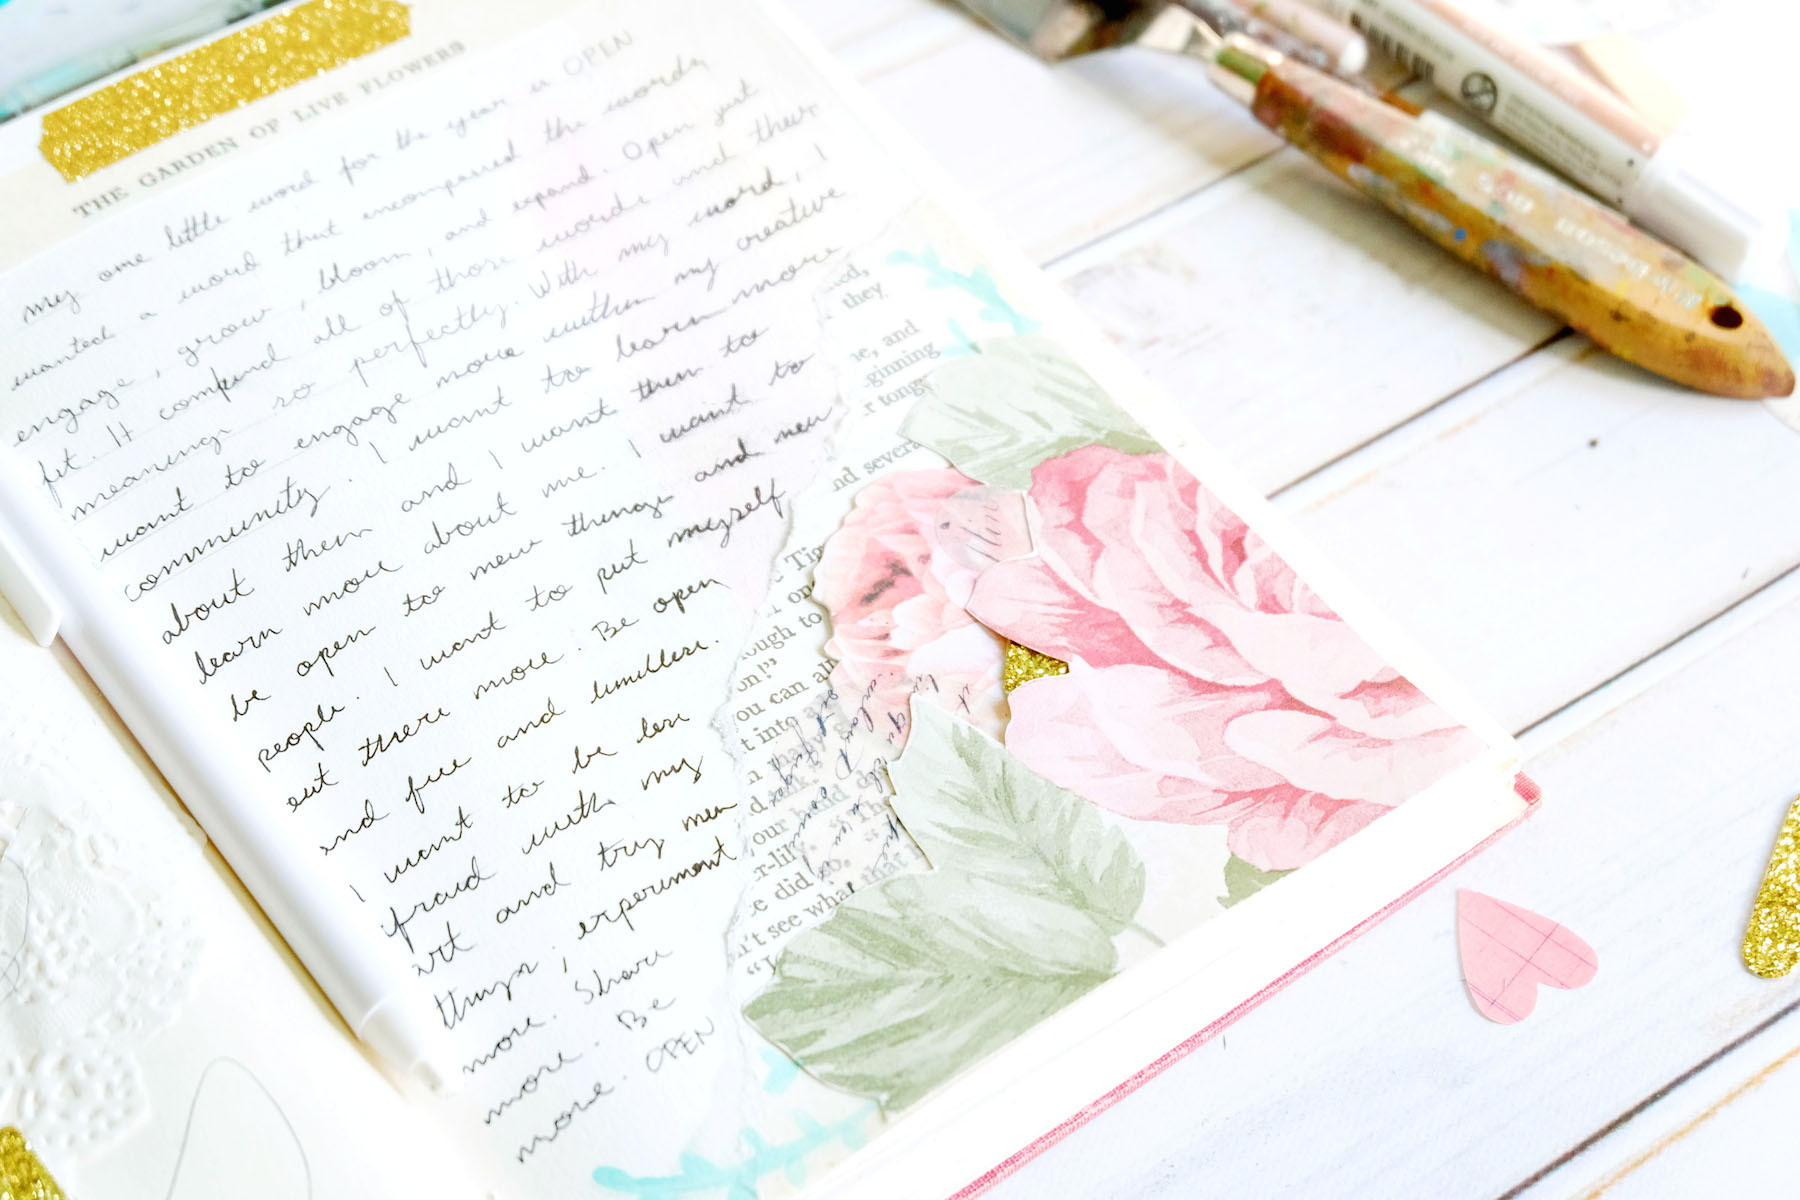 THE GARDEN OF LIVE FLOWERS
my one little word for the year is OPEN
wanted a word that encompassed the words
engage, grow, bloom, and expand. Open just
fit. It compind all of those words and their
meanings so perfectly. With my word, I
want to engage more within my creative
community. I want to learn more
about them and I want them to
learn more about me. I want to
be open to new things and new
people. I want to put myself
out there more. Be open
and free and limitless.
I want to be less
afraid with my
art and try new
things, experiment
more. Share
more. Be
more. OPEN
they
e, and
ginning
r tongu
nd severa
Tig
ough to
on!"
ou can all
t into a
our head
e did so.
n't see what that